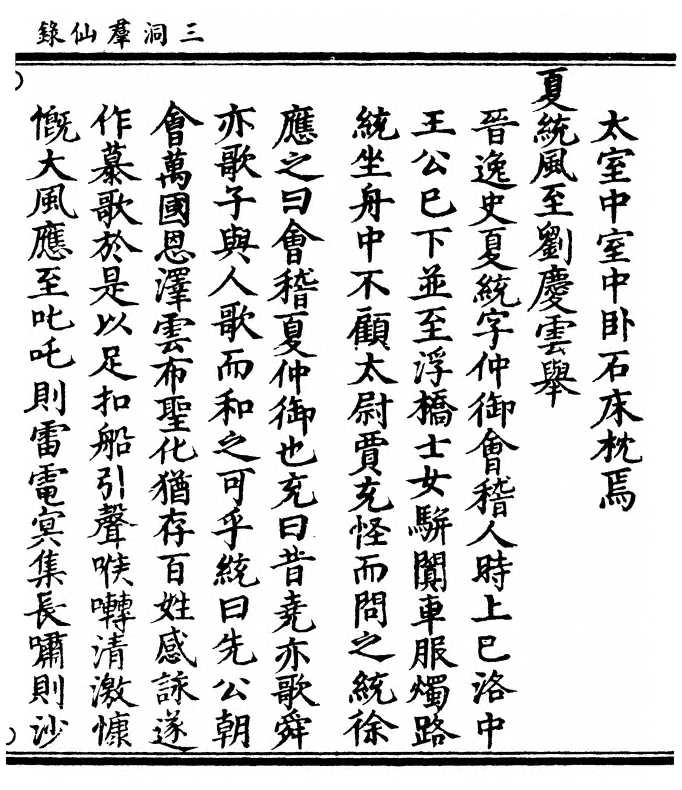 三洞羣仙錄
太室中室中卧石床枕焉
夏統風至劉慶雲舉
晉逸史夏統字仲御會稽人時上巳洛中
王公巳下並至浮橋士女駢闐車服燭路
統坐舟中不顧太尉賈充怪而問之統徐
應之曰會稽夏仲御也充曰昔堯亦歌舜
亦歌子與人歌而和之可乎統曰先公朝
會萬國恩澤雲布聖化猶存百姓感詠遂
作慕歌於是以足扣船引聲喉囀清激慷
慨大風應至叱吒則雷電冥集長嘯則沙